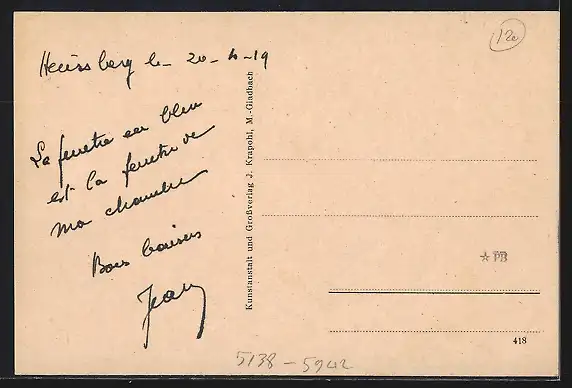 le 20-4-19
La fenetre en bleu
est la fenetre de
ma chambre
Bons baisers
Jean
Kunstanstalt und Großverlag J. Krapohl, M.-Gladbach
12e
☆ PB
418
5138-5942